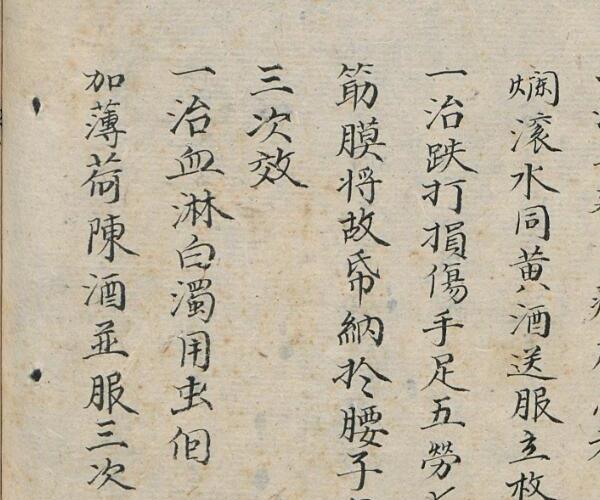 爛滾水同黄酒送服立
一治跌打損傷手足五勞
筋膜将故帋納扵腰子
三次效
一治血淋白濁用虫佪
加薄荷陳酒並服三次